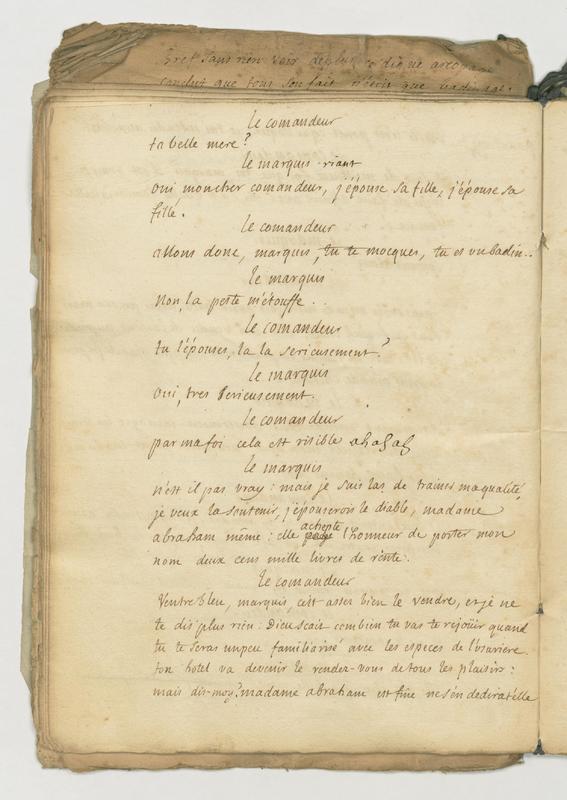 bref sans rien voir de plus, ce digne areopage
conduit que tous son fait n'etoit que badinage.
le comandeur
ta belle mere?
le marquis riant
oui mon cher comandeur, j'épouse sa fille, j'épouse sa
fille.
le comandeur
allons donc, marquis, tu te mocques, tu es un badin..
le marquis
non, la peste m'étouffe..
le comandeur
tu l'épouses, la la serieusement?
le marquis
oui, tres serieusement.
le comandeur
par ma foi cela est risible ahahah
le marquis
n'est il pas vray: mais je suis las de trainer ma qualité,
je veux la soutenir, j'épouserois le diable, madame
abraham même: elle paye achepte l'honneur de porter mon
nom deux cens mille livres de rente.
le comandeur
Ventrebleu, marquis, c'est assez bien le vendre, et je ne
te dis plus rien: Dieu scait combien tu vas te rejoüir quand
tu te seras un peu familiarisé avec les especes de l'usuriere.
ton hotel va devenir le rendez-vous de tous les plaisirs:
mais dis-moy? madame abraham est fine ne s'en dedira t'elle